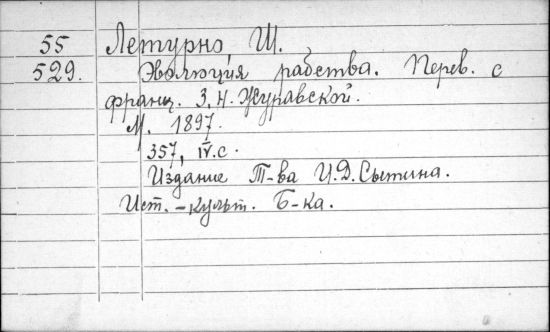 55 Летурно, Ш.
529. Эволюция рабства. Перев. с
франц. З. Н. Журавской.
М. 1897.
357, IV.с.
Издание Т-ва И.Д.Сытина.
Ист.-культ. Б-ка.